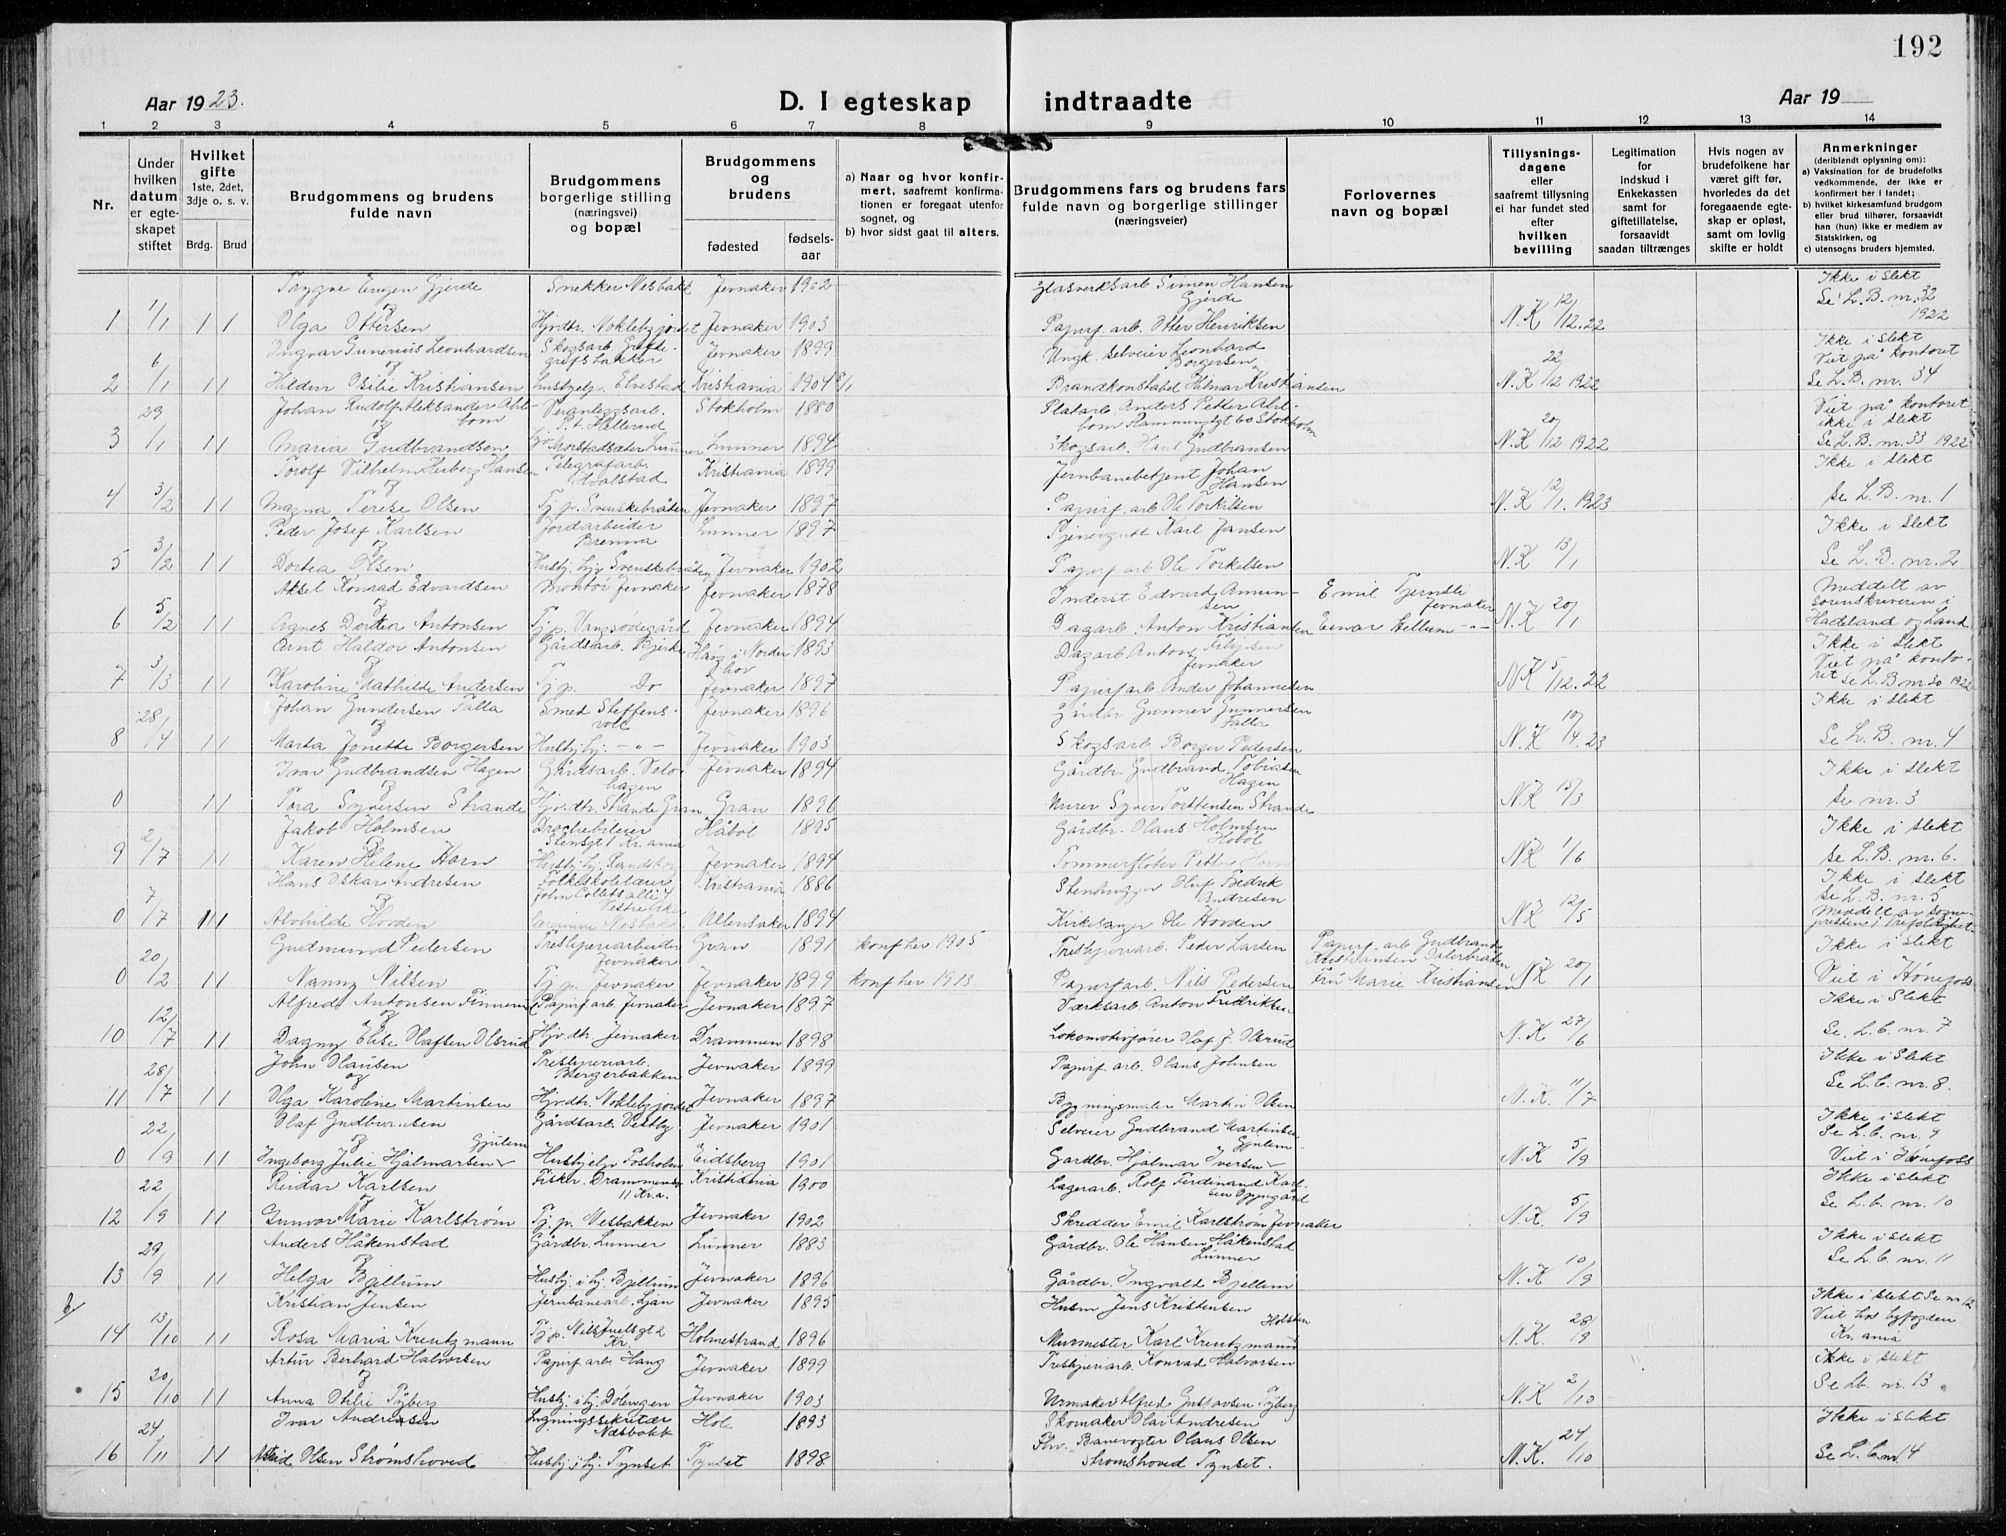 192
Aar 1923.
D. I egteskap indtraadte
Aar 19
1 2 3 4 5 6 7 8 9 10 11 12 13 14
Nr.
Under hvilken datum er egteskapet stiftet
Hvilket gifte 1ste, 2det, 3dje o. s. v.
Brdg. Brud
Brudgommens og brudens fulde navn
Brudgommens borgerlige stilling (næringsvei) og bopæl
Brudgommens og brudens
fødested
fødselsaar
a) Naar og hvor konfirmert, saafremt konfirmationen er foregaat utenfor sognet, og
b) hvor sidst gaat til alters.
Brudgommens fars og brudens fars fulde navn og borgerlige stillinger (næringsveier)
Forlovernes navn og bopæl
Tillysningsdagene eller saafremt tillysning ei har fundet sted efter hvilken bevilling
Legitimation for indskud i Enkekassen samt for giftetillatelse, forsaavidt saadan tiltrænges
Hvis nogen av brudefolkene har været gift før, hvorledes da det foregaaende egteskap er opløst, samt om lovlig skifte er holdt
Anmerkninger (deriblandt oplysning om):
a) Vaksination for de brudefolks vedkommende, der ikke er konfirmert her i landet;
b) hvilket kirkesamfund brudgom eller brud tilhører, forsaavidt han (hun) ikke er medlem av Statskirken, og
c) utensogns bruders hjemsted.
Trygve Eugen Gjerde Snekker Nesbakk Jevnaker 1902 Glasverksarb Simen Hansen Gjerde Ikke i slekt
1 1/1 1 1 og Olga Ottersen Hjvdtr. Moklebyjordet Jevnaker 1903 Papirf. arb. Otter Henriksen N.K 12/12.22 Se L.B. nr. 32 1922
Ingvar Gunerius Leonhardsen Skogsarb Jevnaker 1899 Ungk. selveier Leonhard Borgersen Ikke i slekt Viet på kontoret
2 6/1 1 1 og Hildur Otilie Kristiansen Husbjelp. Elvestad Kristiania 1904 8/1 Brandkonstabel Hilmar Kristiansen N.K 22/12 1922 Se L.B. nr. 34
Johan Rudolf Aleksander Ahlbom P.t. Hellerud Stokholm 1880 Platarb. Anders Petter Ahlbom Stokholm Viet på kontoret ikke i slekt
3 29/1 1 1 og Maria Gudbrandsen Lunner 1894 Skogsarb. Hans Gudbransen N.K 20/12 1922 Se L.B. nr. 33 1922
Torolf Vilhelm Herberg Hansen Telegrafarb. Hvalstad Kristiania 1899 Jernbanebetjent Johan Hansen Ikke i slekt
4 3/2 1 1 og Magna Terese Olsen Tj. p. Svenskebråten Jevnaker 1897 Papirf. arb Ole Torkilsen N.K 12/1. 1923 Se L.B. nr. 1
Peder Josef Karlsen Jordarbeider Brenna Lunner 1897 Karl Jansen Ikke i slekt
5 3/2 1 1 og Dortea Olsen Svenskebråten Jevnaker 1902 Papirf arb Ole Torkelsen N.K 13/1 Se L.B. nr. 2
Aksel Konrad Edvardsen Montør Jevnaker Jevnaker 1878 Inderst Edvard Amundsen Emil Tjernsli Jevnaker Meddelt av
6 5/2 1 1 og Agnes Dortea Antonsen Jevnaker 1894 Dagarb. Anton Kristiansen Einar Hellum -"- N.K 20/1 sorenskriveren i Hadeland og Land
Arnt Haldor Antonsen Gårdsarb. Bjerke 1893 Dagarb Anton Jevnaker Ikke i slekt
7 3/3 1 1 og Karoline Mathilde Andersen Tj. p. Do Jevnaker 1897 Papirf arb Johannesen N.K 5/12.22 Viet på kontoret Se L.B nr 30 1922
Johan Gundersen Falla Smed Steffensvold Jevnaker 1896 Gårdbr Gunner Gunnersen Falla Ikke i slekt
8 28/4 1 1 og Marta Jonette Borgersen Husbj. hj. -"- Jevnaker 1903 Skogsarb Borger Pedersen N.K 10/4.23 Se L.B. nr. 4
Ivar Gudbrandsen Hagen Gårdsarb. Jevnaker 1894 Gårdbr. Gudbrand Tobiasen Hagen Ikke i slekt
0 1 1 og Tora Syversen Strande Hjv. dtr. Strande Gran Gran 1896 Murer Syver Torstensen Strande N.K 15/3 Se nr. 3
Jakob Holmsen Stensgt 1 Kr.ania Håbøl 1895 Gårdbr. Olaus Holmsen Hobøl Ikke i slekt
9 2/7 1 1 og Karen Helene Horn Jevnaker 1894 Tommerfløter Petter Horn N.K 1/6 Se L.B. nr. 6.
Hans Oskar Andresen Folkeskolelærer Kristiania 1886 Stenhugger Oluf Fredrik Andresen Ikke i slekt Se L.B. nr. 5
0 7/7 1 1 og Alvhilde Hovden Ullensaker 1894 Kirksanger Ole Hovden N.K 12/5 Meddelt av sognepresten i Trefoldighet
Gudmund Pedersen Tresliperiarbeider Jevnaker Gran 1891 konf her 1905 Tresliperiarb. Peder Larsen Papirf. arb Gudbrand Kristiansen Ikke i slekt
0 20/2 1 1 og Nanny Nilsen Tj. p. Jevnaker Jevnaker 1899 konf her 1913 Papirf arb. Nils Pedersen Frú Marie Kristiansen N.K 20/1 Viet i Hønefoss
Alfred Antonsen Papirf arb. Jevnaker Jevnaker 1897 Værksarb. Anton Fredriksen Ikke i slekt
10 12/7 1 1 og Dagny Elise Olafsen Olsrud Hjv. dtr. Jevnaker Drammen 1898 Lokomotivfører Olaf J. Olsrud N.K. 27/6 Se L.b. nr. 7
John Olausen Tresliperiarb. Bergerbakken Jevnaker 1899 Papirf. arb. Olaus Johnsen Ikke i slekt
11 28/7 1 1 og Olga Karoline Martinsen Hjvdtr. Moklebyjordet Jevnaker 1897 Bygningsmaler Martin Olsen N.K. 11/7 Se L.b. nr. 8.
Olaf Gudbransen Gjulem Gårdsarb. Vestby Jevnaker 1901 Selveier Gudbrand Martinsen Gjulem Ikke i slekt Se L.b. nr. 9
0 22/9 1 1 og Ingeborg Julie Hjalmarsen Husbjelp Fosholm Eidsberg 1901 Gardbr. Hjalmar Iversen N.K 5/9 Viet i Hønefoss
Reidar Karlsen Fisker. Drammensv 11 Kr.a. Kristiania 1900 Lagerarb. Rolf Ferdinand Karlsen Oppegård Ikke i slekt
12 22/9 1 1 og Gunvor Marie Karlstrøm Tj. p. Nesbakken Jevnaker 1902 Skredder Emil Karlstrøm Jevnaker N.K. 5/9 Se L.b. nr. 10
Anders Håkenstad Gårdbr. Lunner Lunner 1883 Gårdbr. Ole Hansen Håkenstad Lunner Ikke i slekt
13 29/9 1 1 og Helga Bjellum Husbj. i hj. Bjellum Jevnaker 1896 Gårdbr. Ingvald Bjellum N.K. 10/9 Se L.b. nr. 11
Kristian Jensen Jernbanearb. Ljan Jevnaker 1895 Husm Jens Kristensen Holsten Ikke i slekt Se nr 12
14 13/10 1 1 og Rosa Maria Kreutzmann Tj. p. Nils Juelsgt 2 Kr. Holmestrand 1896 Murmester Karl Kreutzmann N.K. 28/9 Viet hos byfogden Kr.ania
Artur Berhard Halvorsen Papirf arb. Haug Jevnaker 1899 Tresliperiarb. Konrad Halvorsen Ikke i slekt
15 20/10 1 1 og Anna Otilie Tyberg Husbj. i hj. Jevnaker 1903 Urmaker Alfred Gustavsen Tyberg N.K. 2/10 Se L.b. nr. 13
Ivar Andreasen Ligningssekretær Næsbakk Hole 1893 Skomaker Olav Andresen Ikke i slekt
16 24/11 1 1 Astrid Olsen Strømshoved Husbj. i hj. Tynset Tynset 1898 Fhv. Banevogter Olaus Olsen Strømshoved Tynset. N.K. 24/10 Se L.b. nr. 14